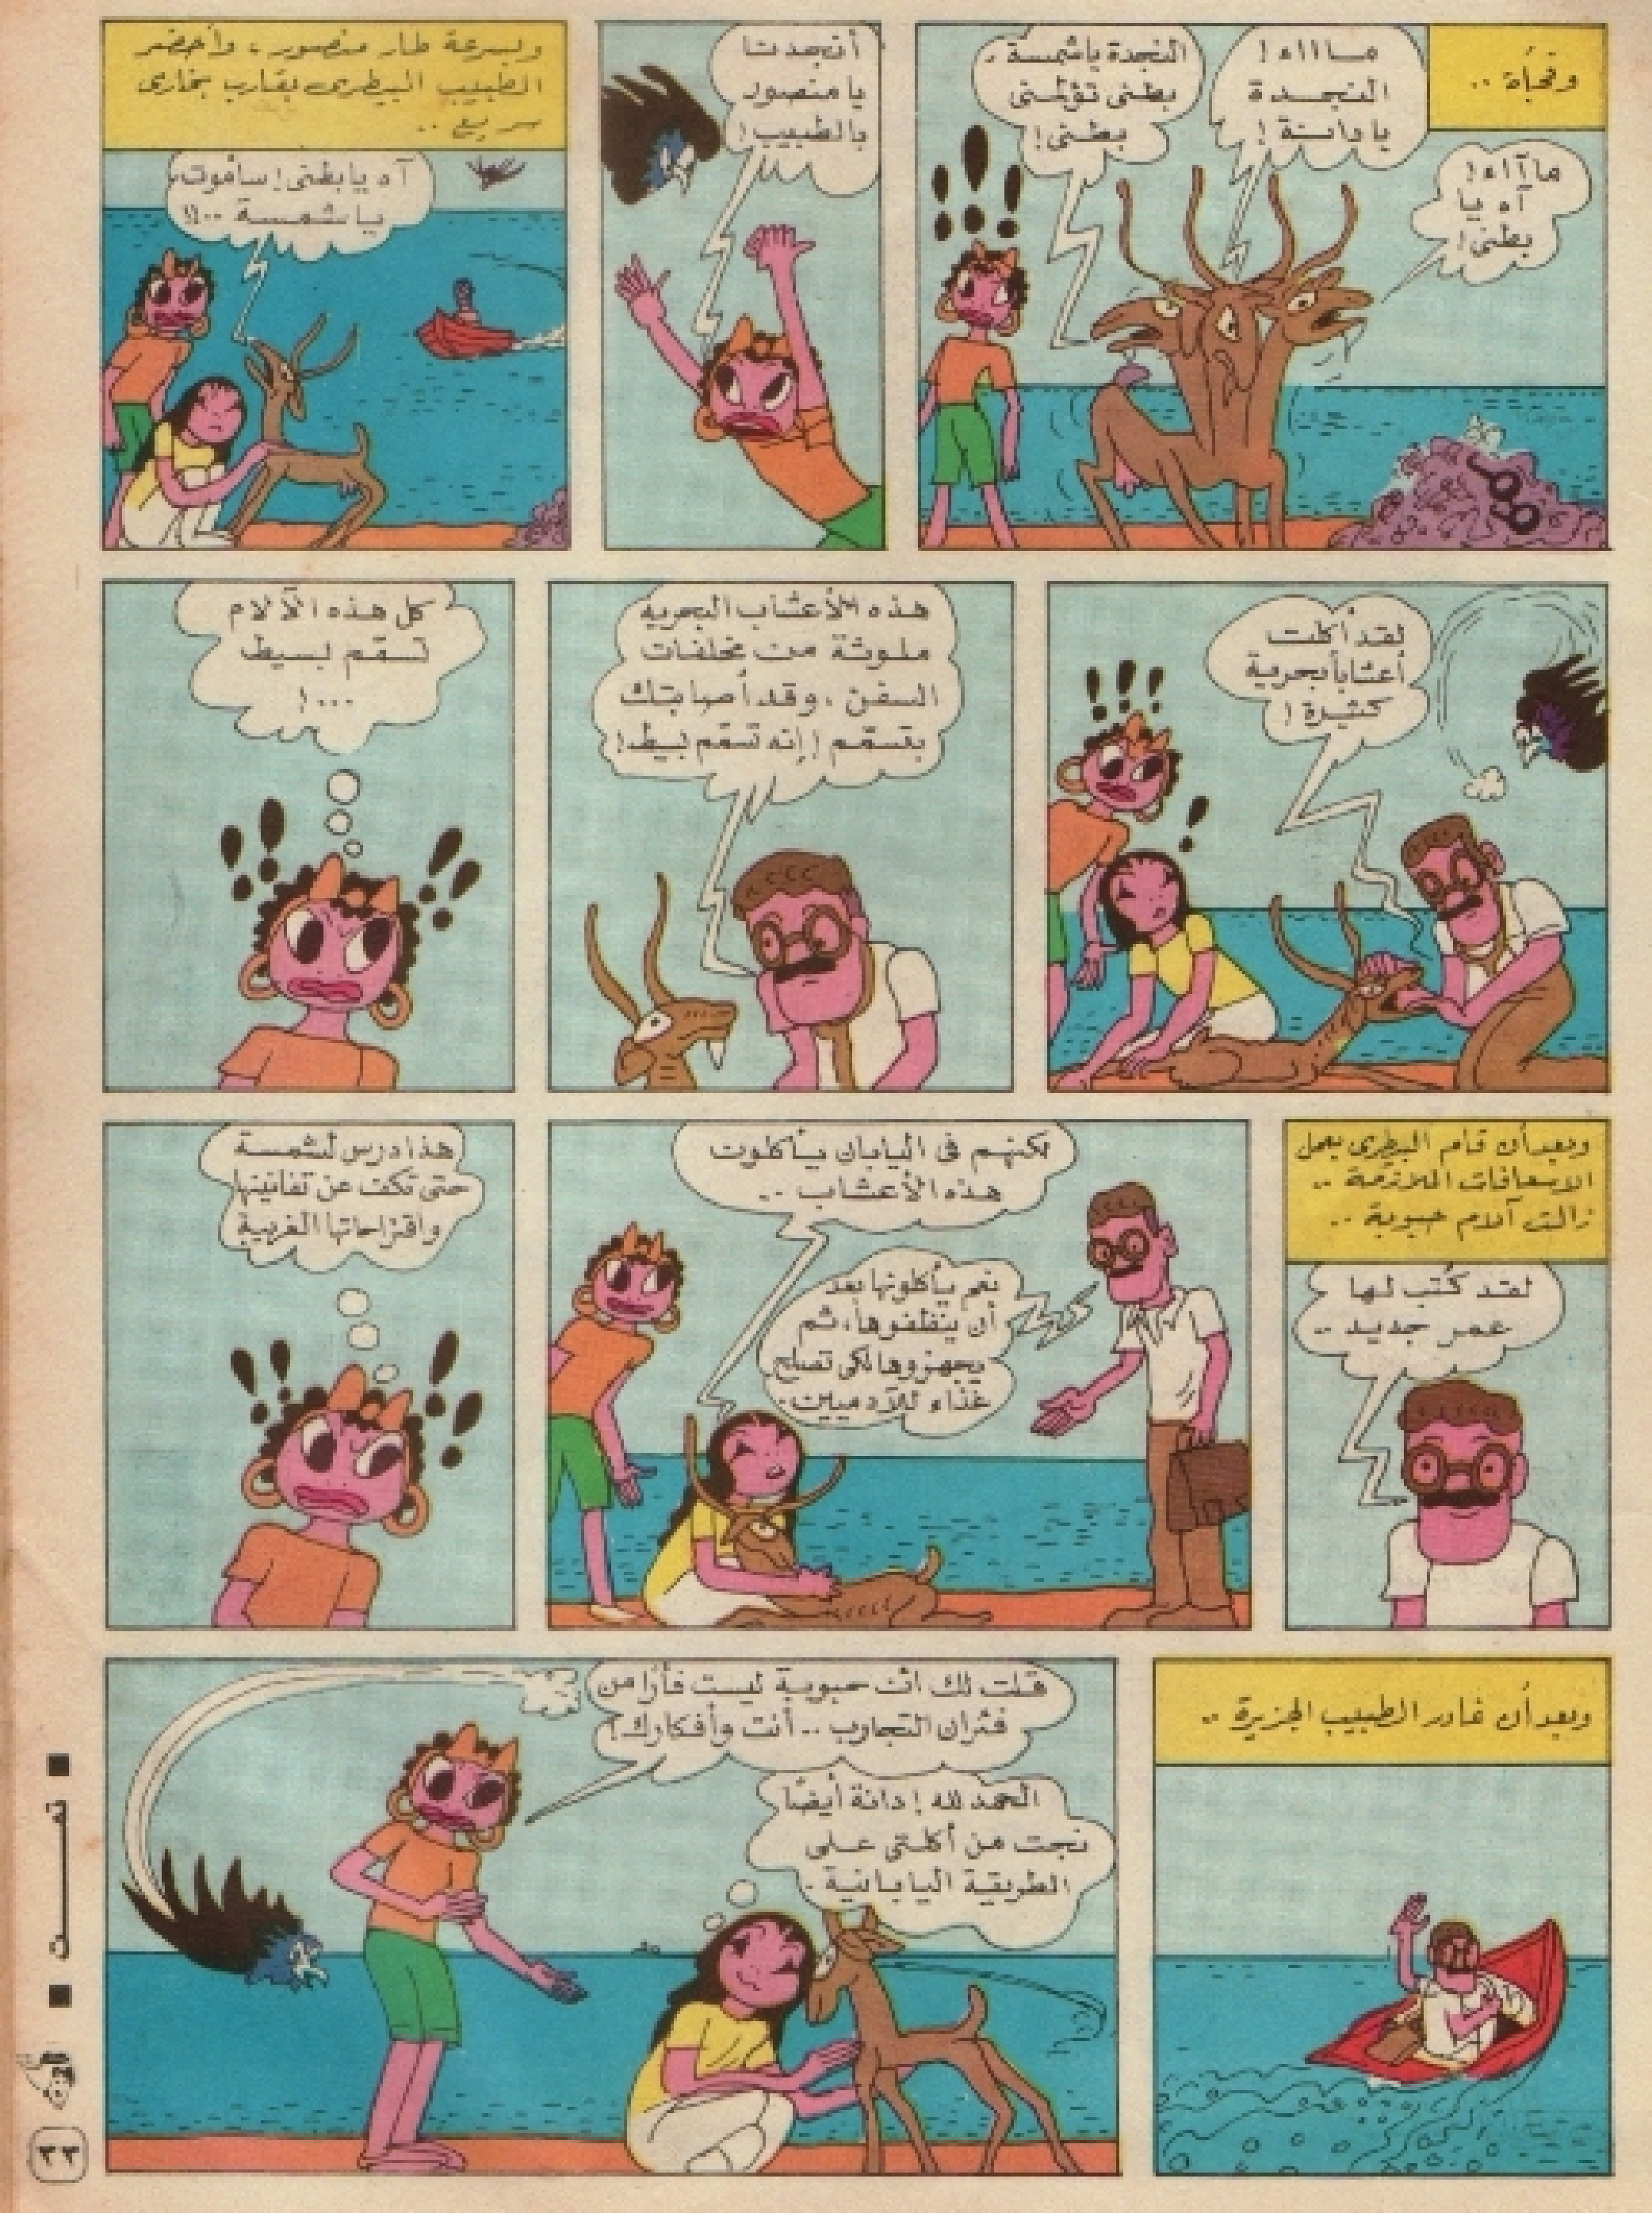 وفجأة ..
مـاااء!
النـجـدة
يا دانـة !
النجدة يا شمسة ..
بطنى تؤلمنى
بطنى !
ماآاء!
آه يا
بطنى !
أنـجـدنـا
يا منصور
بالطبيب !
وبسرعة طار منصور، وأحضر
الطبيب البيطرى بقارب بخارى
سريع ..
آه يا بطنى ! سأموت
يا شمسـة ..!!
لقد أكلت
أعشاباً بحرية
كثيرة !
هذه الأعشاب البحريه
ملوثة من مخلفات
السفن ، وقد أصابتك
بتسمّم ! إنه تسمّم بسيط !
كل هذه الآلام
تسمّم بسيط
... !
وبعد أن قام البيطرى بعمل
الاسعافات اللازمة ..
زالت آلام حبوبة ..
لقد كُتب لها
عمر جديد ..
لكنهم فى اليابان يأكلون
هذه الأعشاب ..
نعم يأكلونها بعد
أن ينظفوها، ثم
يجهزوها لكى تصلح
غذاء للآدميين.
هذا درس لشمسة
حتى تكف عن تفانينها
واقتراحاتها الغريبة
وبعد أن غادر الطبيب الجزيرة ..
قلت لك ان حبوبة ليست فأرًا من
فئران التجارب .. أنت وأفكارك !
الحمد لله ! دانة أيضًا
نجت من أكلتى على
الطريقة اليابانية .
■ تمـــت ■
٣٣